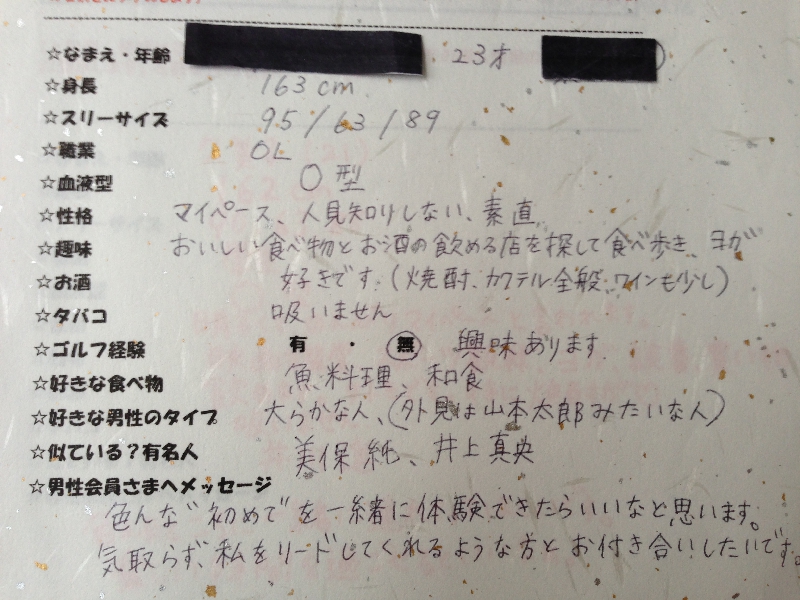 ☆なまえ・年齢 23才
☆身長 163cm
☆スリーサイズ 95/63/89
☆職業 OL
☆血液型 O型
☆性格 マイペース、人見知りしない、素直
☆趣味 おいしい食べ物とお酒の飲める店を探して食べ歩き、ヨガ
☆お酒 好きです(焼酎、カクテル全般、ワインも少し)
☆タバコ 吸いません
☆ゴルフ経験 有・無 興味あります
☆好きな食べ物 魚料理、和食
☆好きな男性のタイプ 大らかな人、(外見は山本太郎みたいな人)
☆似ている?有名人 美保純、井上真央
☆男性会員さまへメッセージ
色んな"初めて"を一緒に体験できたらいいなと思います。
気取らず、私をリードしてくれるような方とお付き合いしたいです。